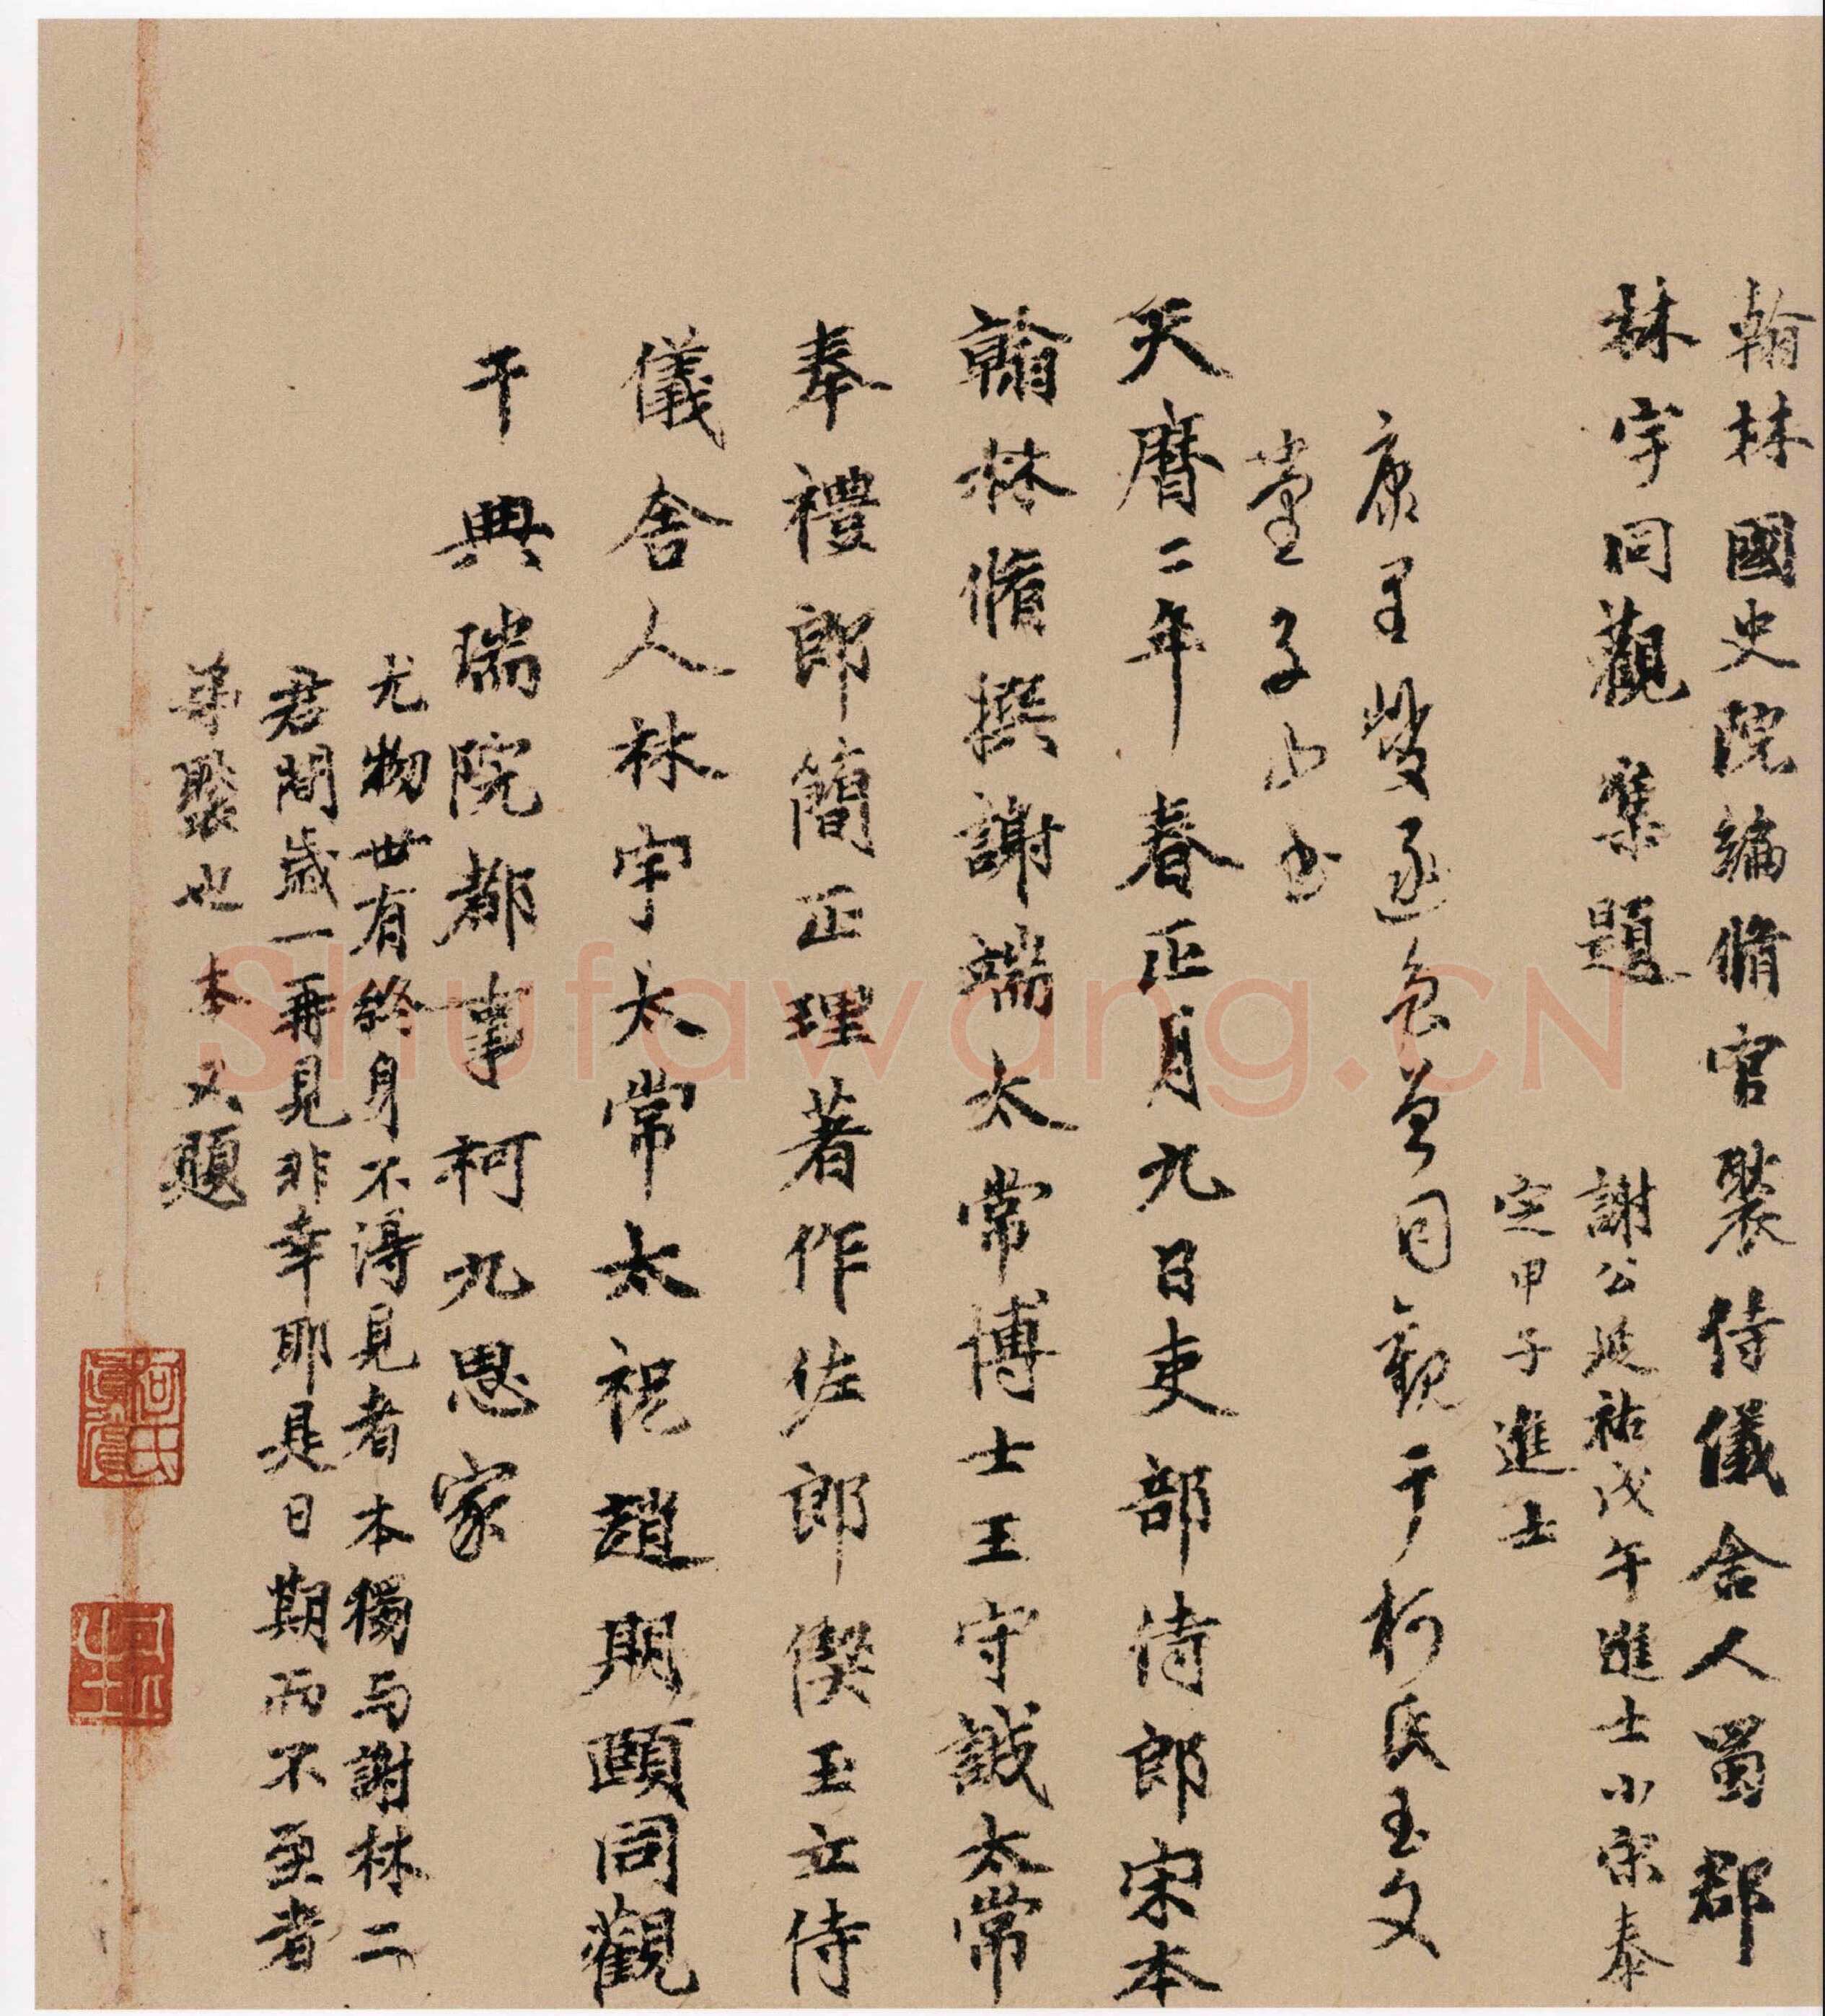 翰林國史院編脩官裴侍儀舍人蜀郡
林宇同觀集題
謝公延祐戊午進士小宋泰
定甲子進士
康里巎遂各苔同觀于柯氏玉文
堂子山書
天曆二年春正月九日吏部侍郎宋本
翰林脩撰謝端太常博士王守誠太常
奉禮郎簡正理著作佐郎偰玉立侍
儀舍人林宇太常太祝趙期頤同觀
于典瑞院都事柯九思家
尤物世有終身不得見者本獨与謝林二
君間歲一再見非幸耶是日期而不至者
弟褧也 本又題
柯氏真賞
Shufawang.CN